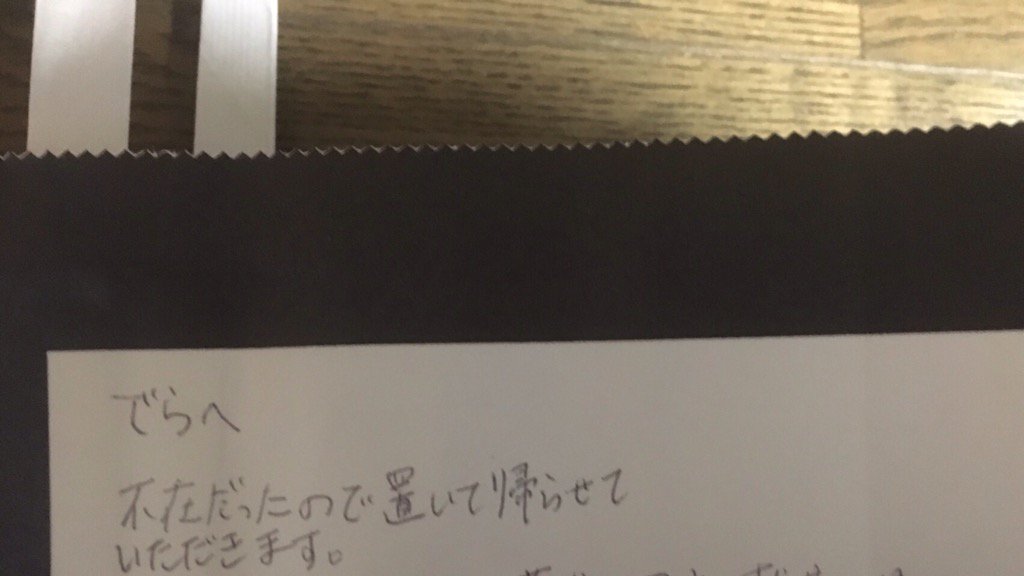 でらへ
不在だったので置いて帰らせて
いただきます。